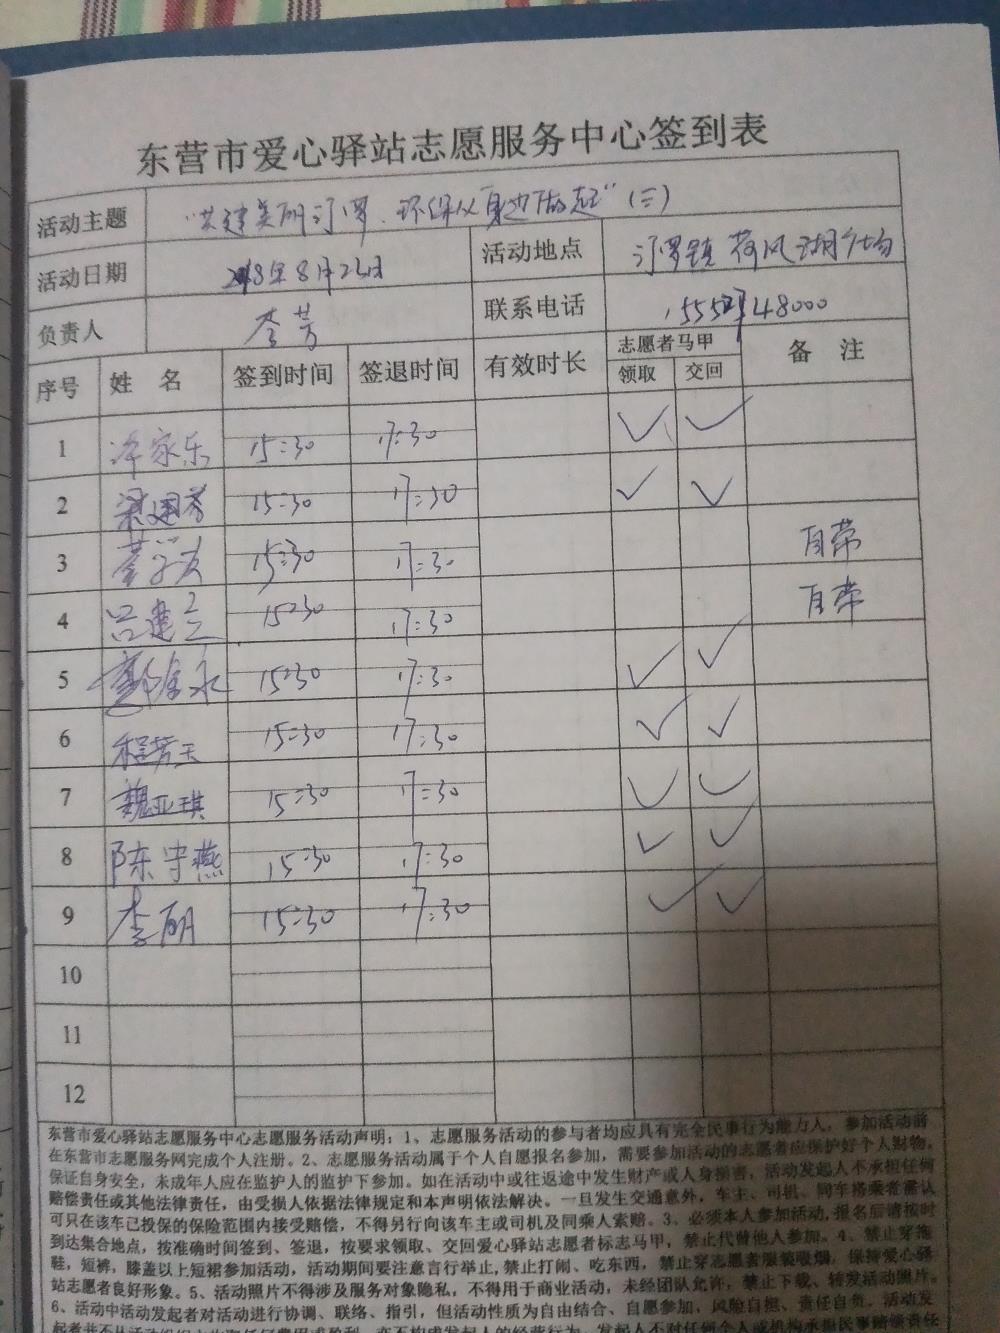 东营市爱心驿站志愿服务中心签到表
活动主题 "共建美丽汀罗、环保从身边做起"(三)
活动日期 2018年8月23日 活动地点 汀罗镇荷风湖广场
负责人 李芳 联系电话
序号 姓 名 签到时间 签退时间 有效时长 志愿者马甲 备 注
领取 交回
1 家乐 15:30 17:30 ✓ ✓
2 梁建芳 15:30 17:30 ✓ ✓
3 15:30 17:30 自带
4 吕建立 15:30 17:30 自带
5 永 15:30 17:30 ✓ ✓
6 程芳玉 15:30 17:30 ✓ ✓
7 魏亚琪 15:30 17:30 ✓ ✓
8 陈守燕 15:30 17:30 ✓ ✓
9 李丽 15:30 17:30 ✓ ✓
10
11
12
东营市爱心驿站志愿服务中心志愿服务活动声明：1、志愿服务活动的参与者均应具有完全民事行为能力人，参加活动前
在东营市志愿服务网完成个人注册。2、志愿服务活动属于个人自愿报名参加，需要参加活动的志愿者应保护好个人财物，
保证自身安全，未成年人应在监护人的监护下参加。如在活动中或往返途中发生财产或人身损害，活动发起人不承担任何
赔偿责任或其他法律责任，由受损人依据法律规定和本声明依法解决。一旦发生交通意外，车主、司机、同车搭乘者需认
可只在该车已投保的保险范围内接受赔偿，不得另行向该车主或司机及同乘人索赔。3、必须本人参加活动，报名后请按时
到达集合地点，按准确时间签到、签退，按要求领取、交回爱心驿站志愿者标志马甲，禁止代替他人参加。4、禁止穿拖
鞋，短裤，膝盖以上短裙参加活动，活动期间要注意言行举止，禁止打闹、吃东西，禁止穿志愿者服装吸烟，保持爱心驿
站志愿者良好形象。5、活动照片不得涉及服务对象隐私，不得用于商业活动，未经团队允许，禁止下载、转发活动照片。
6、活动中活动发起者对活动进行协调、联络、指引，但活动性质为自由结合、自愿参加、风险自担、责任自负。活动发
起者并不从活动组织中收取任何费用或盈利，亦不构成发起人的经营行为，发起人不对任何个人或机构承担民事赔偿责任